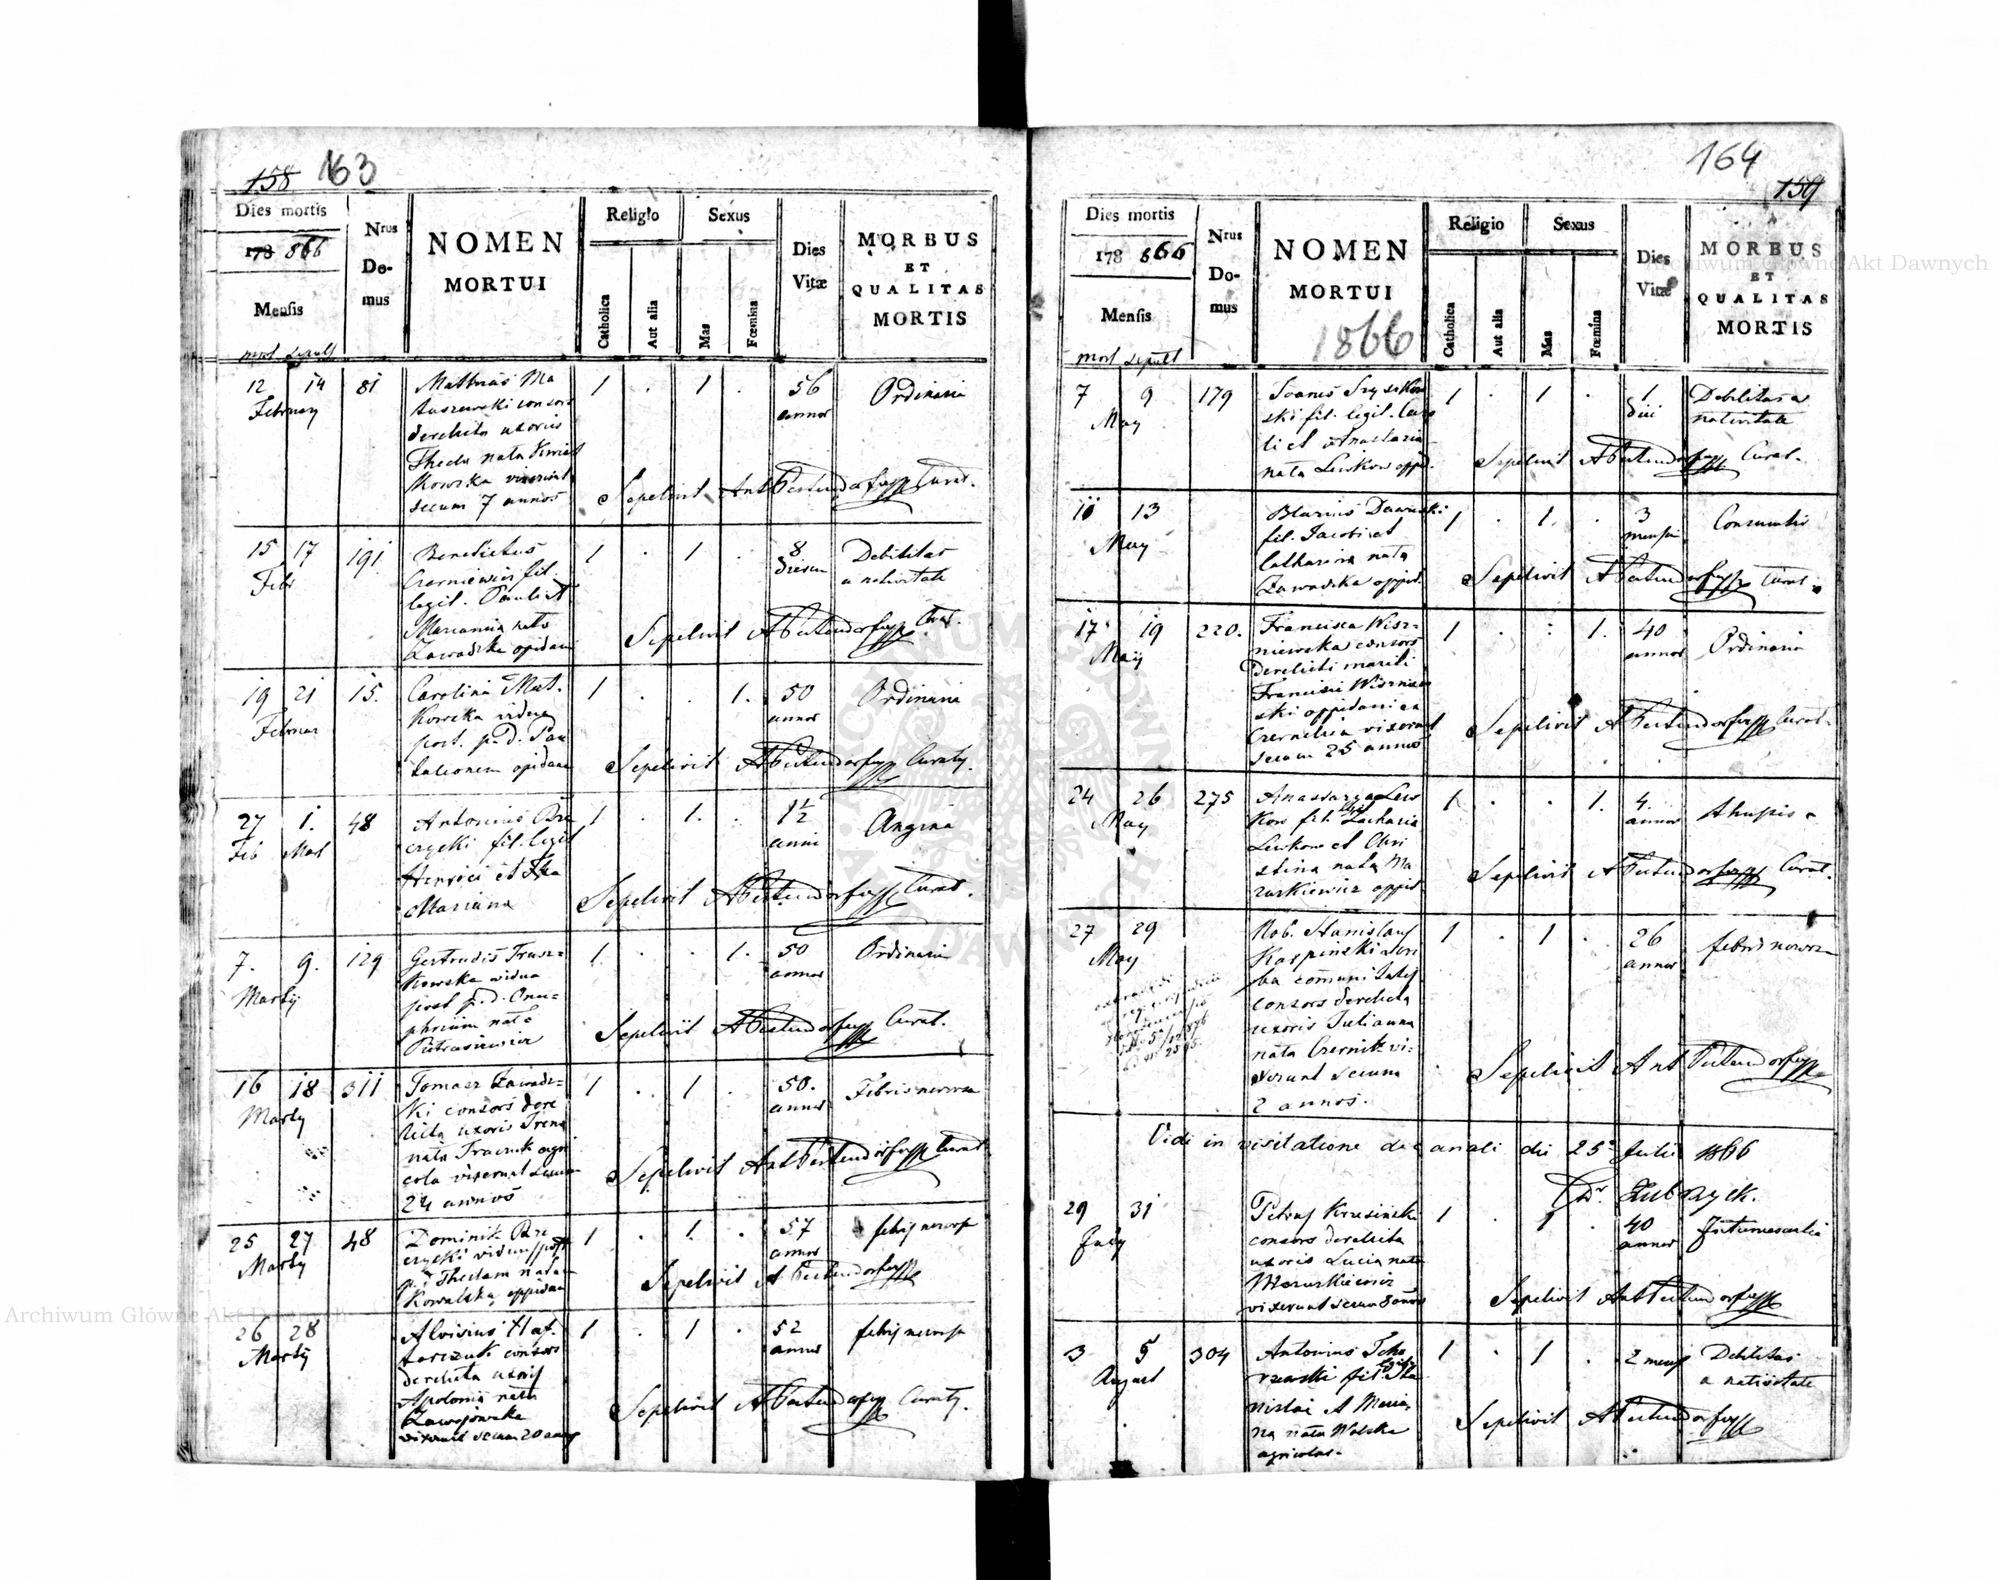 158 163
Dies mortis
178 866
Mensis
mort sepult
Nrus
Do-
mus
NOMEN
MORTUI
Religio
Catholica
Aut alia
Sexus
Mas
Fœmina
Dies
Vitæ
MORBUS
ET
QUALITAS
MORTIS
12 14 81
February
Mathias Ma
tuszewski consors
derelicta uxoris
Thecla nata
vixerunt
secum 7 annos
1 . 1 .
56
annor
Ordinaria
Sepelivit Ant Curat.
15 17 191
Febr
Benedictus
Czerniewicz fil.
legit. Pauli et
Marianna nata
Zawadzka opidani
1 . 1 .
8
dierum
Debilitas
a nativitate
Sepelivit Curat.
19 21 15.
Februar
Carolina Mut.
kowska vidua
post. p. d. Pan
taleonem opidana
1 . . 1.
50
annor
Ordinaria
Sepelivit Curaty.
27 1. 48
Feb Mart
Antonius Brze
zycki fil. legit
Henrici et
Mariana
1 . 1. .
1½
anni
Angina
Sepelivit Curat.
7. 9. 129
Martij
Gertrudis Trusz=
kowska vidua
post p. d. Onu=
phrium nata
Pietrasiewicz
1. . . 1.
50
annor
Ordinaria
Sepelivit Curat.
16 18 311
Martij
Tomasz Zawadz=
ki consors dere
licta uxoris Irena
nata Tracznik agri
cola vixerunt secum
24 annos
1 . 1 .
50.
annor
Febris nervosa
Sepelivit Ant Curat.
25 27 48
Martij
Dominik Brze
zycki viduus post
p. d. Theclam natam
Kowalska oppidan
1 . 1 .
57
annor
febris nervosa
Sepelivit
26 28
Martij
Aloisius Haf.
tarczuk consors
derelicta uxoris
Apolonia nata
Zawojowska
vixerunt secum 20 annos
1 . 1 .
52
annor
febris nervosa
Sepelivit Curaty.
164
159
Dies mortis
178 866
Mensis
mort sepult
Nrus
Do-
mus
NOMEN
MORTUI
1866
Religio
Catholica
Aut alia
Sexus
Mas
Fœmina
Dies
Vitæ
MORBUS
ET
QUALITAS
MORTIS
7 9 179
May
ski fil. legit. Caro
li et Anastazia
nata Lewkow oppid.
1 . 1 .
1
diei
Debilitas a
nativitate
Sepelivit Curat.
11 13
May
Blasius Dawidski
fil. Jacobi et
Catharina nata
Zawadzka oppid.
1 . 1. .
3
mensium
Consumtio
Sepelivit Curat.
17 19 220.
May
Francisca Wisz=
niewska consors
Derelicti mariti
Francisci Wiszniew
ski oppidani ex
Czernelica vixerunt
secum 25 annos
1 . . 1.
40
annor
Ordinaria
Sepelivit Curat.
24 26 275
May
Anastazya Lew
kow fil. legit Zacharia
Lewkow et Chri
stina nata Ma
zurkiewicz oppid
1 . . 1.
4.
annor
Sepelivit Curat.
27 29
May
Nob. Stanislaus
Karpinski Scri
ba comunitatis
consors derelicta
uxoris Julianna
nata Czernik vi=
xerunt secum
2 annos.
1 . 1 .
26
annor
febris nervosa
Sepelivit Ant
Vidi in visitatione decanali die 25 Julii 1866
29 31
July
Petrus Krusinski
consors derelicta
uxoris Lucia nata
Mazurkiewicz
vixerunt secum 8 annos
1 . 1 .
40
annor
Intumescentia
Sepelivit Ant
3 5 304
August
Antonius Tcho
rzewski fil. legit Sta
nislai et Maria
na nata Wolska
agricolae.
1 . 1 .
2 mens
Debilitas
a nativitate
Sepelivit
Archiwum Główne Akt Dawnych
Archiwum Główne Akt Dawnych